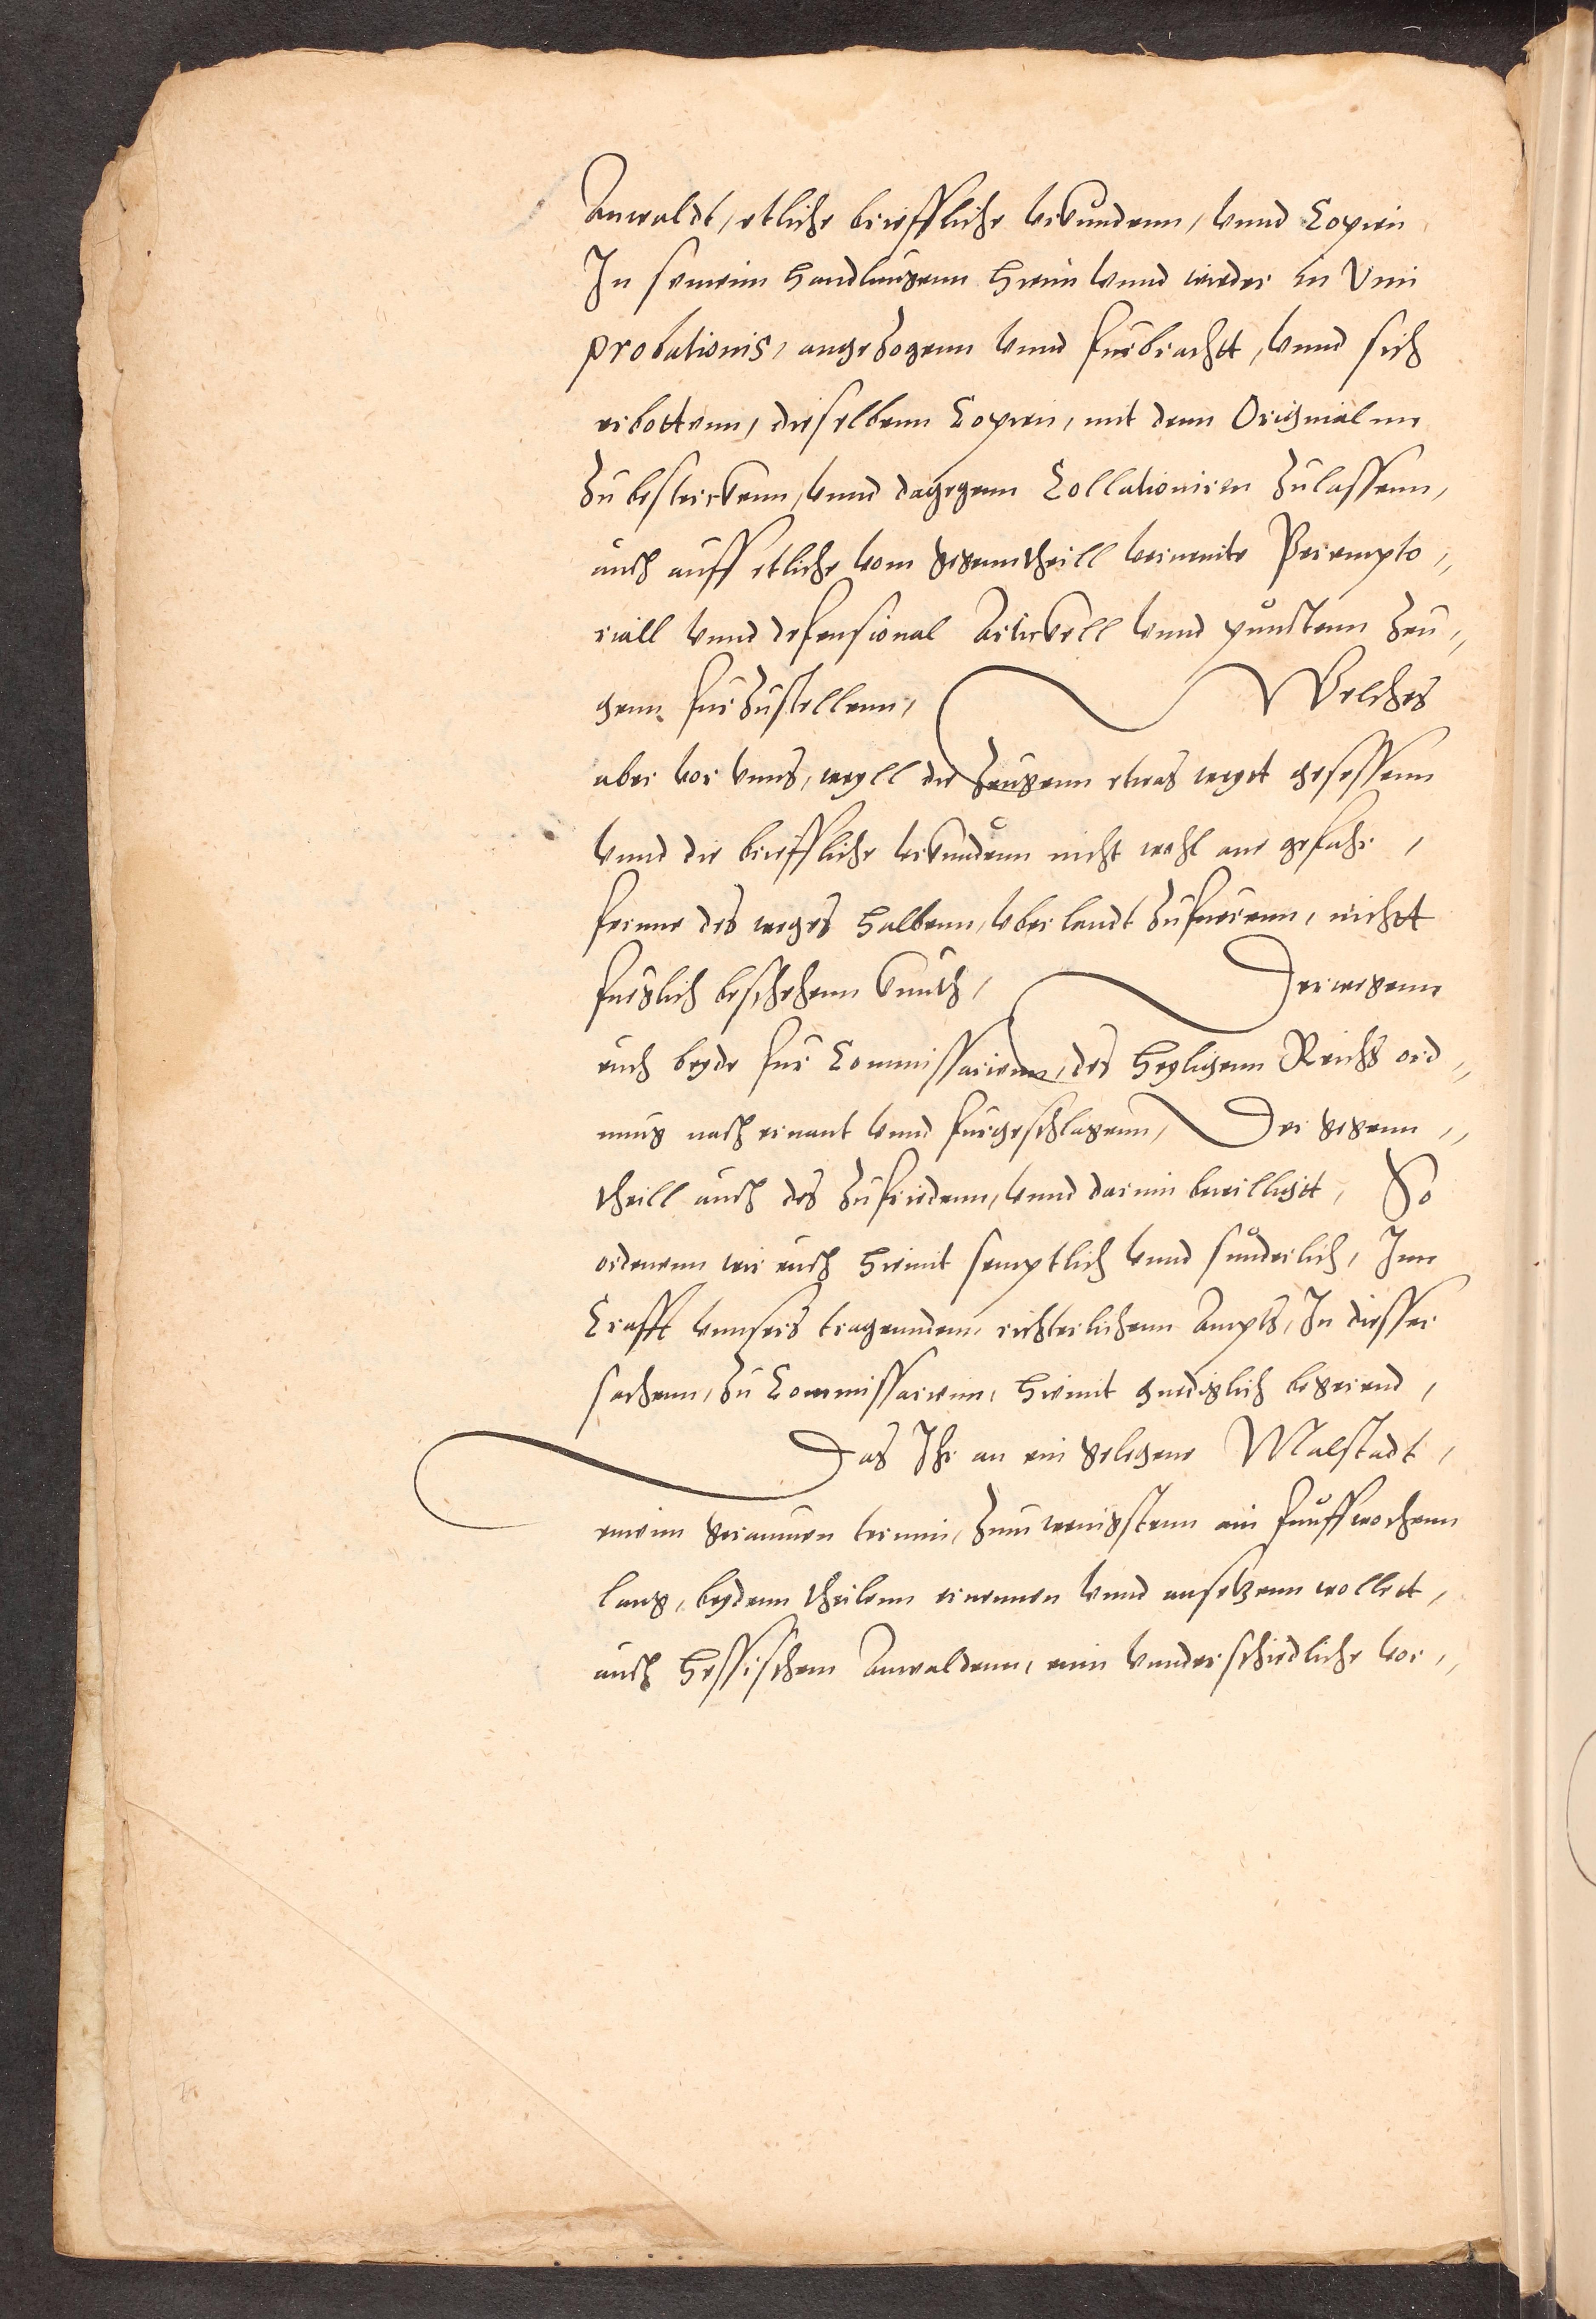 Anwaldt, etliche brieffliche vrkundenn, vnnd Copien
In seinenn handlungenn hienn vnnd wieder in Vim
probationis, angezogenn vnnd furbrachtt, vnnd sich
erbottenn, dieselbenn Copien, mit denn Originalnn
zu besterckenn, vnnd dagegenn Collationiren zulassenn,
auch auff etliche vom gegenntheill vermeinte Perempto„
riall vnnd defensional Artickell vnnd punctenn zeu„
genn furzustellenn, Welches
aber vor vnns, weyll die zeugenn etwas weytt gesessenn
vnnd die brieffliche vrkundenn nicht wohl ane gefahr,
ferrne des weges halbenn, vber landt zufuerenn, nichtt
fuglich beschehenn kunth, Derwegenn
euch beyde fur Commissarienn, des heyligenn Reichs ord„
nung nach ernant vnnd furgeschlagenn, Der gegenn„
theill auch des zufriedenn, vnnd darinn bewilligtt, So
ordenenn wir euch hiemit semptlich vnnd sunderlich, Inn
Crafft vnnsers tragenndenn richterlichenn Ampts, In diesser
sachenn, zu Commissarienn, hiemit gnediglich begerend,
Das Ihr an ein gelegene Malstadt,
einenn geraumen termin, zum wenigstenn ein funff wochenn
lang, beydenn theilenn ernennen vnnd ansetzenn wollett,
auch hessischem Anwaldenn, einn vnnderschiedliche vor„